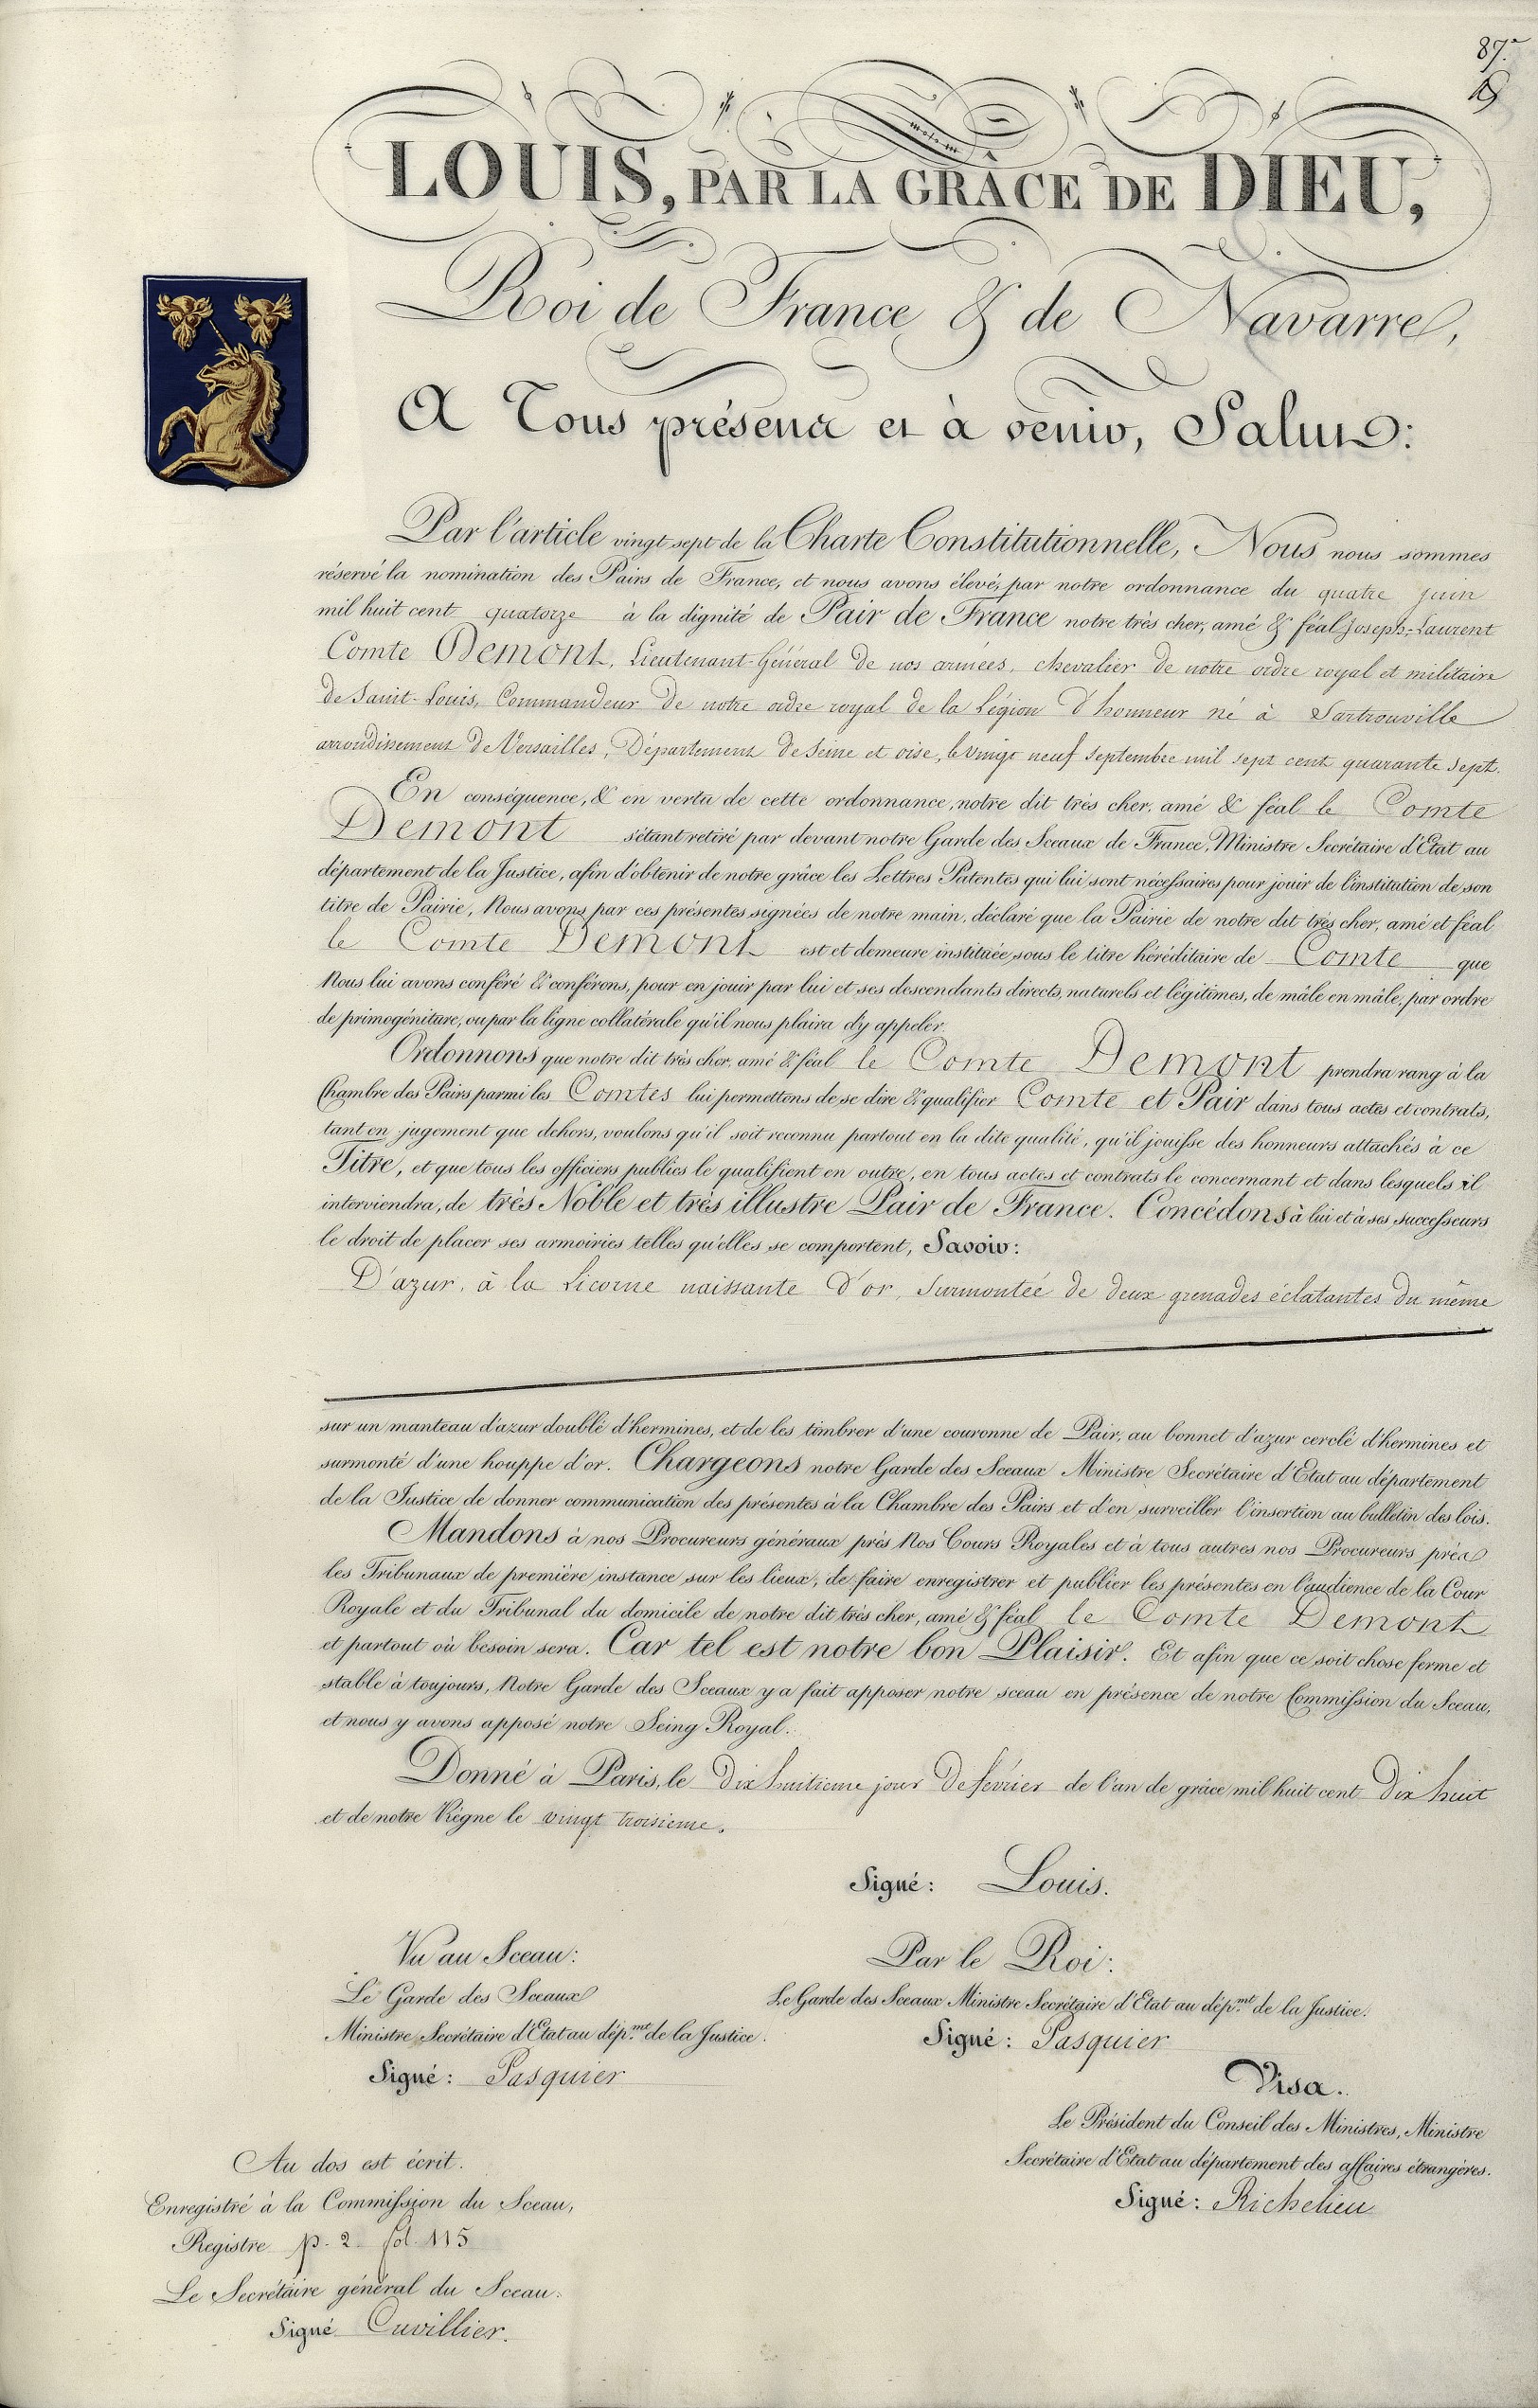 87.e
LOUIS, PAR LA GRÂCE DE DIEU,
Roi de France & de Navarre,
A Tous présens et à venir, Salut:
Par l'article vingt sept de la Charte Constitutionnelle, Nous nous sommes
réservé la nomination des Pairs de France, et nous avons élevé, par notre ordonnance du quatre juin
mil huit cent quatorze à la dignité de Pair de France notre très cher, amé & féal Joseph=Laurent
Comte Demont, Lieutenant-Général de nos armées, chevalier de notre ordre royal et militaire
de Saint-Louis, Commandeur de notre ordre royal de la Légion d'honneur né à Sartrouville
arrondissement de Versailles, Département de Seine et oise, le vingt neuf septembre mil sept cent quarante sept.
En conséquence, & en vertu de cette ordonnance, notre dit très cher, amé & féal le Comte
Demont s'étant retiré par devant notre Garde des Sceaux de France, Ministre Secrétaire d'Etat au
département de la Justice, afin d'obtenir de notre grâce les Lettres Patentes qui lui sont nécessaires pour jouir de l'institution de son
titre de Pairie, Nous avons par ces présentes signées de notre main, déclaré que la Pairie de notre dit très cher, amé et féal
le Comte Demont est et demeure instituée sous le titre héréditaire de Comte que
Nous lui avons conféré & conférons, pour en jouir par lui et ses descendants directs, naturels et légitimes, de mâle en mâle, par ordre
de primogéniture, ou par la ligne collatérale qu'il nous plaira d'y appeler.
Ordonnons que notre dit très cher, amé & féal le Comte Demont prendra rang à la
Chambre des Pairs parmi les Comtes lui permettons de se dire & qualifier Comte et Pair dans tous actes et contrats,
tant en jugement que dehors, voulons qu'il soit reconnu partout en la dite qualité, qu'il jouisse des honneurs attachés à ce
Titre, et que tous les officiers publics le qualifient en outre, en tous actes et contrats le concernant et dans lesquels il
interviendra, de très Noble et très illustre Pair de France. Concédons à lui et à ses successeurs
le droit de placer ses armoiries telles qu'elles se comportent, Savoir:
D'azur, à la Licorne naissante d'or, surmontée de deux grenades éclatantes du même
sur un manteau d'azur doublé d'hermines, et de les timbrer d'une couronne de Pair, au bonnet d'azur cerclé d'hermines et
surmonté d'une houppe d'or. Chargeons notre Garde des Sceaux Ministre Secrétaire d'Etat au département
de la Justice de donner communication des présentes à la Chambre des Pairs et d'en surveiller l'insertion au bulletin des lois.
Mandons à nos Procureurs généraux près Nos Cours Royales et à tous autres nos Procureurs près
les Tribunaux de première instance sur les lieux, de faire enregistrer et publier les présentes en l'audience de la Cour
Royale et du Tribunal du domicile de notre dit très cher, amé & féal le Comte Demont
et partout où besoin sera. Car tel est notre bon Plaisir. Et afin que ce soit chose ferme et
stable à toujours, Notre Garde des Sceaux y a fait apposer notre sceau en présence de notre Commission du Sceau,
et nous y avons apposé notre Seing Royal.
Donné à Paris, le dix huitieme jour de février de l'an de grâce mil huit cent dix huit
et de notre Règne le vingt troisieme.
Signé: Louis.
Vu au Sceau:
Le Garde des Sceaux
Ministre Secrétaire d'Etat au dép.mt de la Justice.
Signé: Pasquier
Par le Roi:
Le Garde des Sceaux Ministre Secrétaire d'Etat au dép.mt de la Justice.
Signé: Pasquier
Visa.
Le Président du Conseil des Ministres, Ministre
Secrétaire d'Etat au département des affaires étrangères.
Signé: Richelieu
Au dos est écrit.
Enregistré à la Commission du Sceau,
Registre p. 2 fol. 115
Le Secrétaire général du Sceau:
Signé Cuvillier.